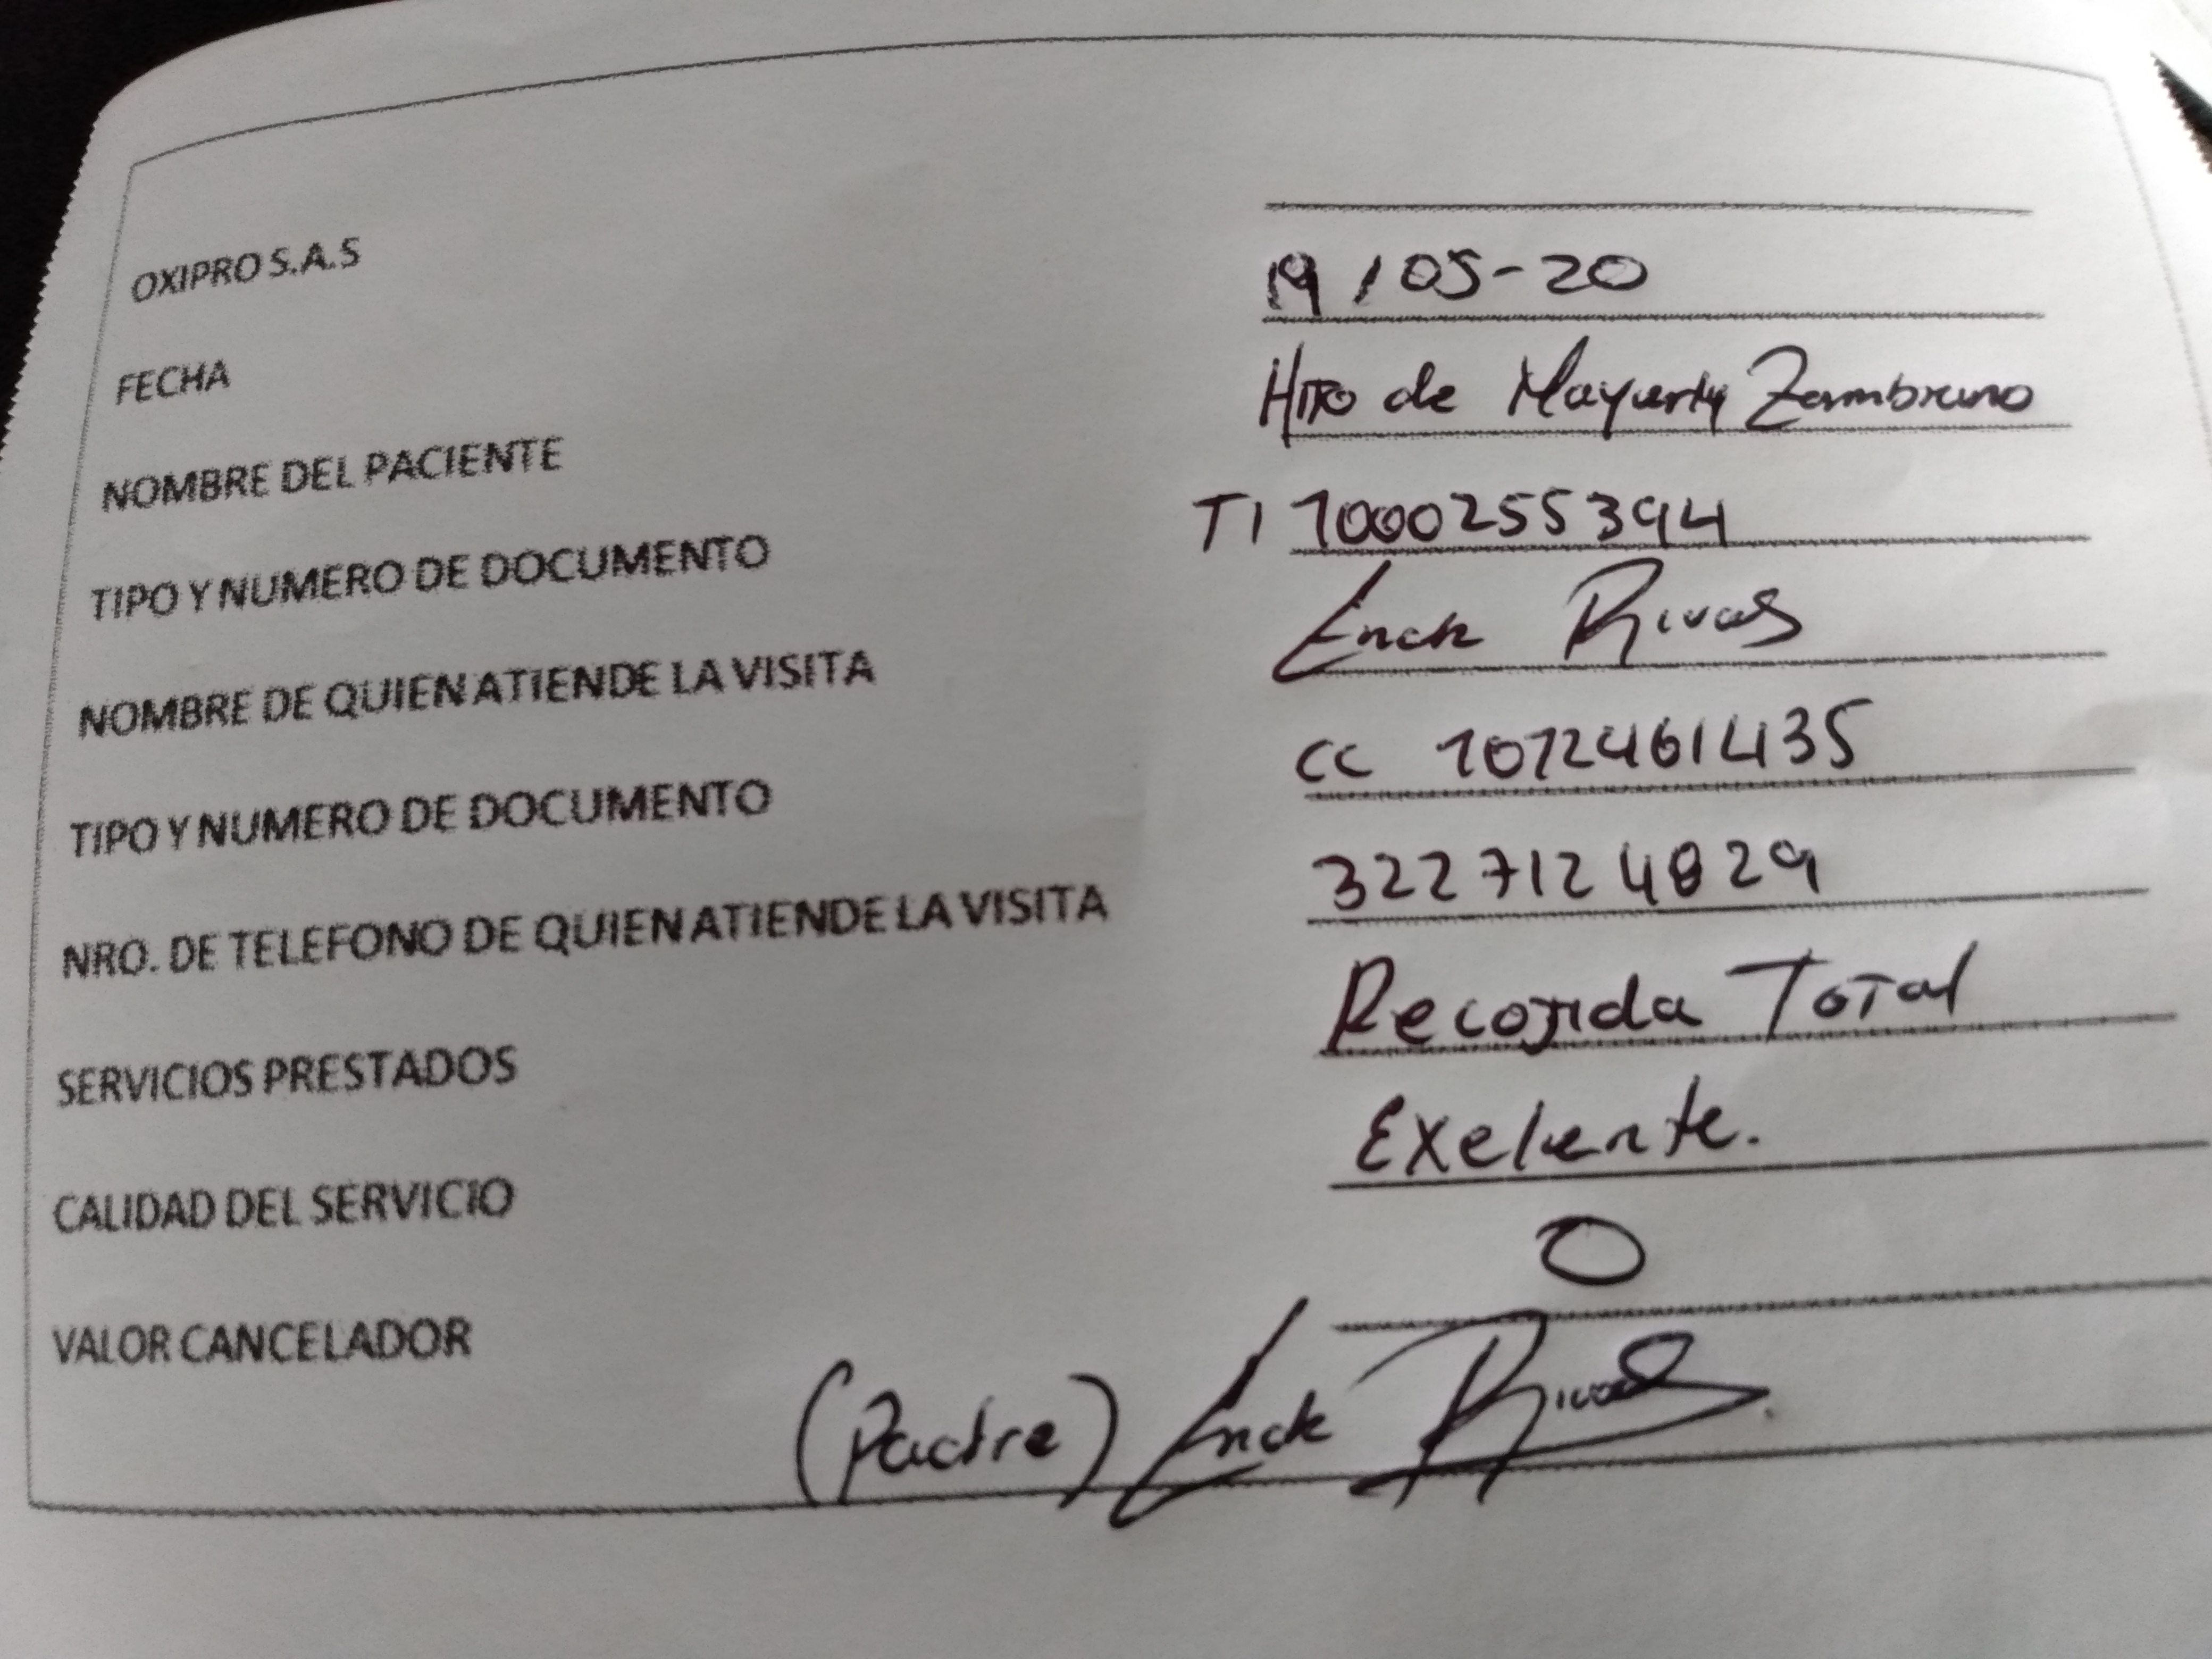 OXIPRO S.A.S
FECHA 19/05-20
NOMBRE DEL PACIENTE Hijo de Mayerly Zambrano
TIPO Y NUMERO DE DOCUMENTO TI 1000255394
NOMBRE DE QUIEN ATIENDE LA VISITA Erick Rivas
TIPO Y NUMERO DE DOCUMENTO CC 1072461435
NRO. DE TELEFONO DE QUIEN ATIENDE LA VISITA 3227124829
SERVICIOS PRESTADOS Recojida Total
CALIDAD DEL SERVICIO Exelente.
VALOR CANCELADOR 0
(Padre) Erick Rivas